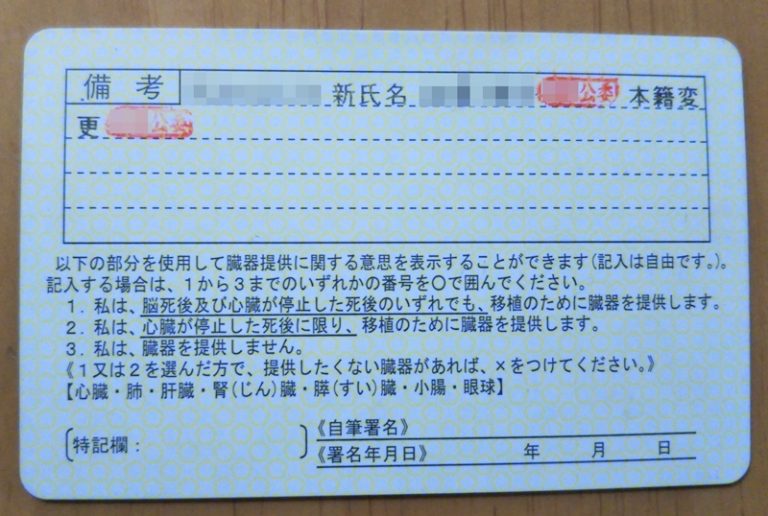 備考 新氏名 公委 本籍変
更 公委
以下の部分を使用して臓器提供に関する意思を表示することができます(記入は自由です。)。
記入する場合は、1から3までのいずれかの番号を〇で囲んでください。
1. 私は、脳死後及び心臓が停止した死後のいずれでも、移植のために臓器を提供します。
2. 私は、心臓が停止した死後に限り、移植のために臓器を提供します。
3. 私は、臓器を提供しません。
《1又は2を選んだ方で、提供したくない臓器があれば、×をつけてください。》
【心臓・肺・肝臓・腎(じん)臓・膵(すい)臓・小腸・眼球】
特記欄:
《自筆署名》
《署名年月日》 年 月 日